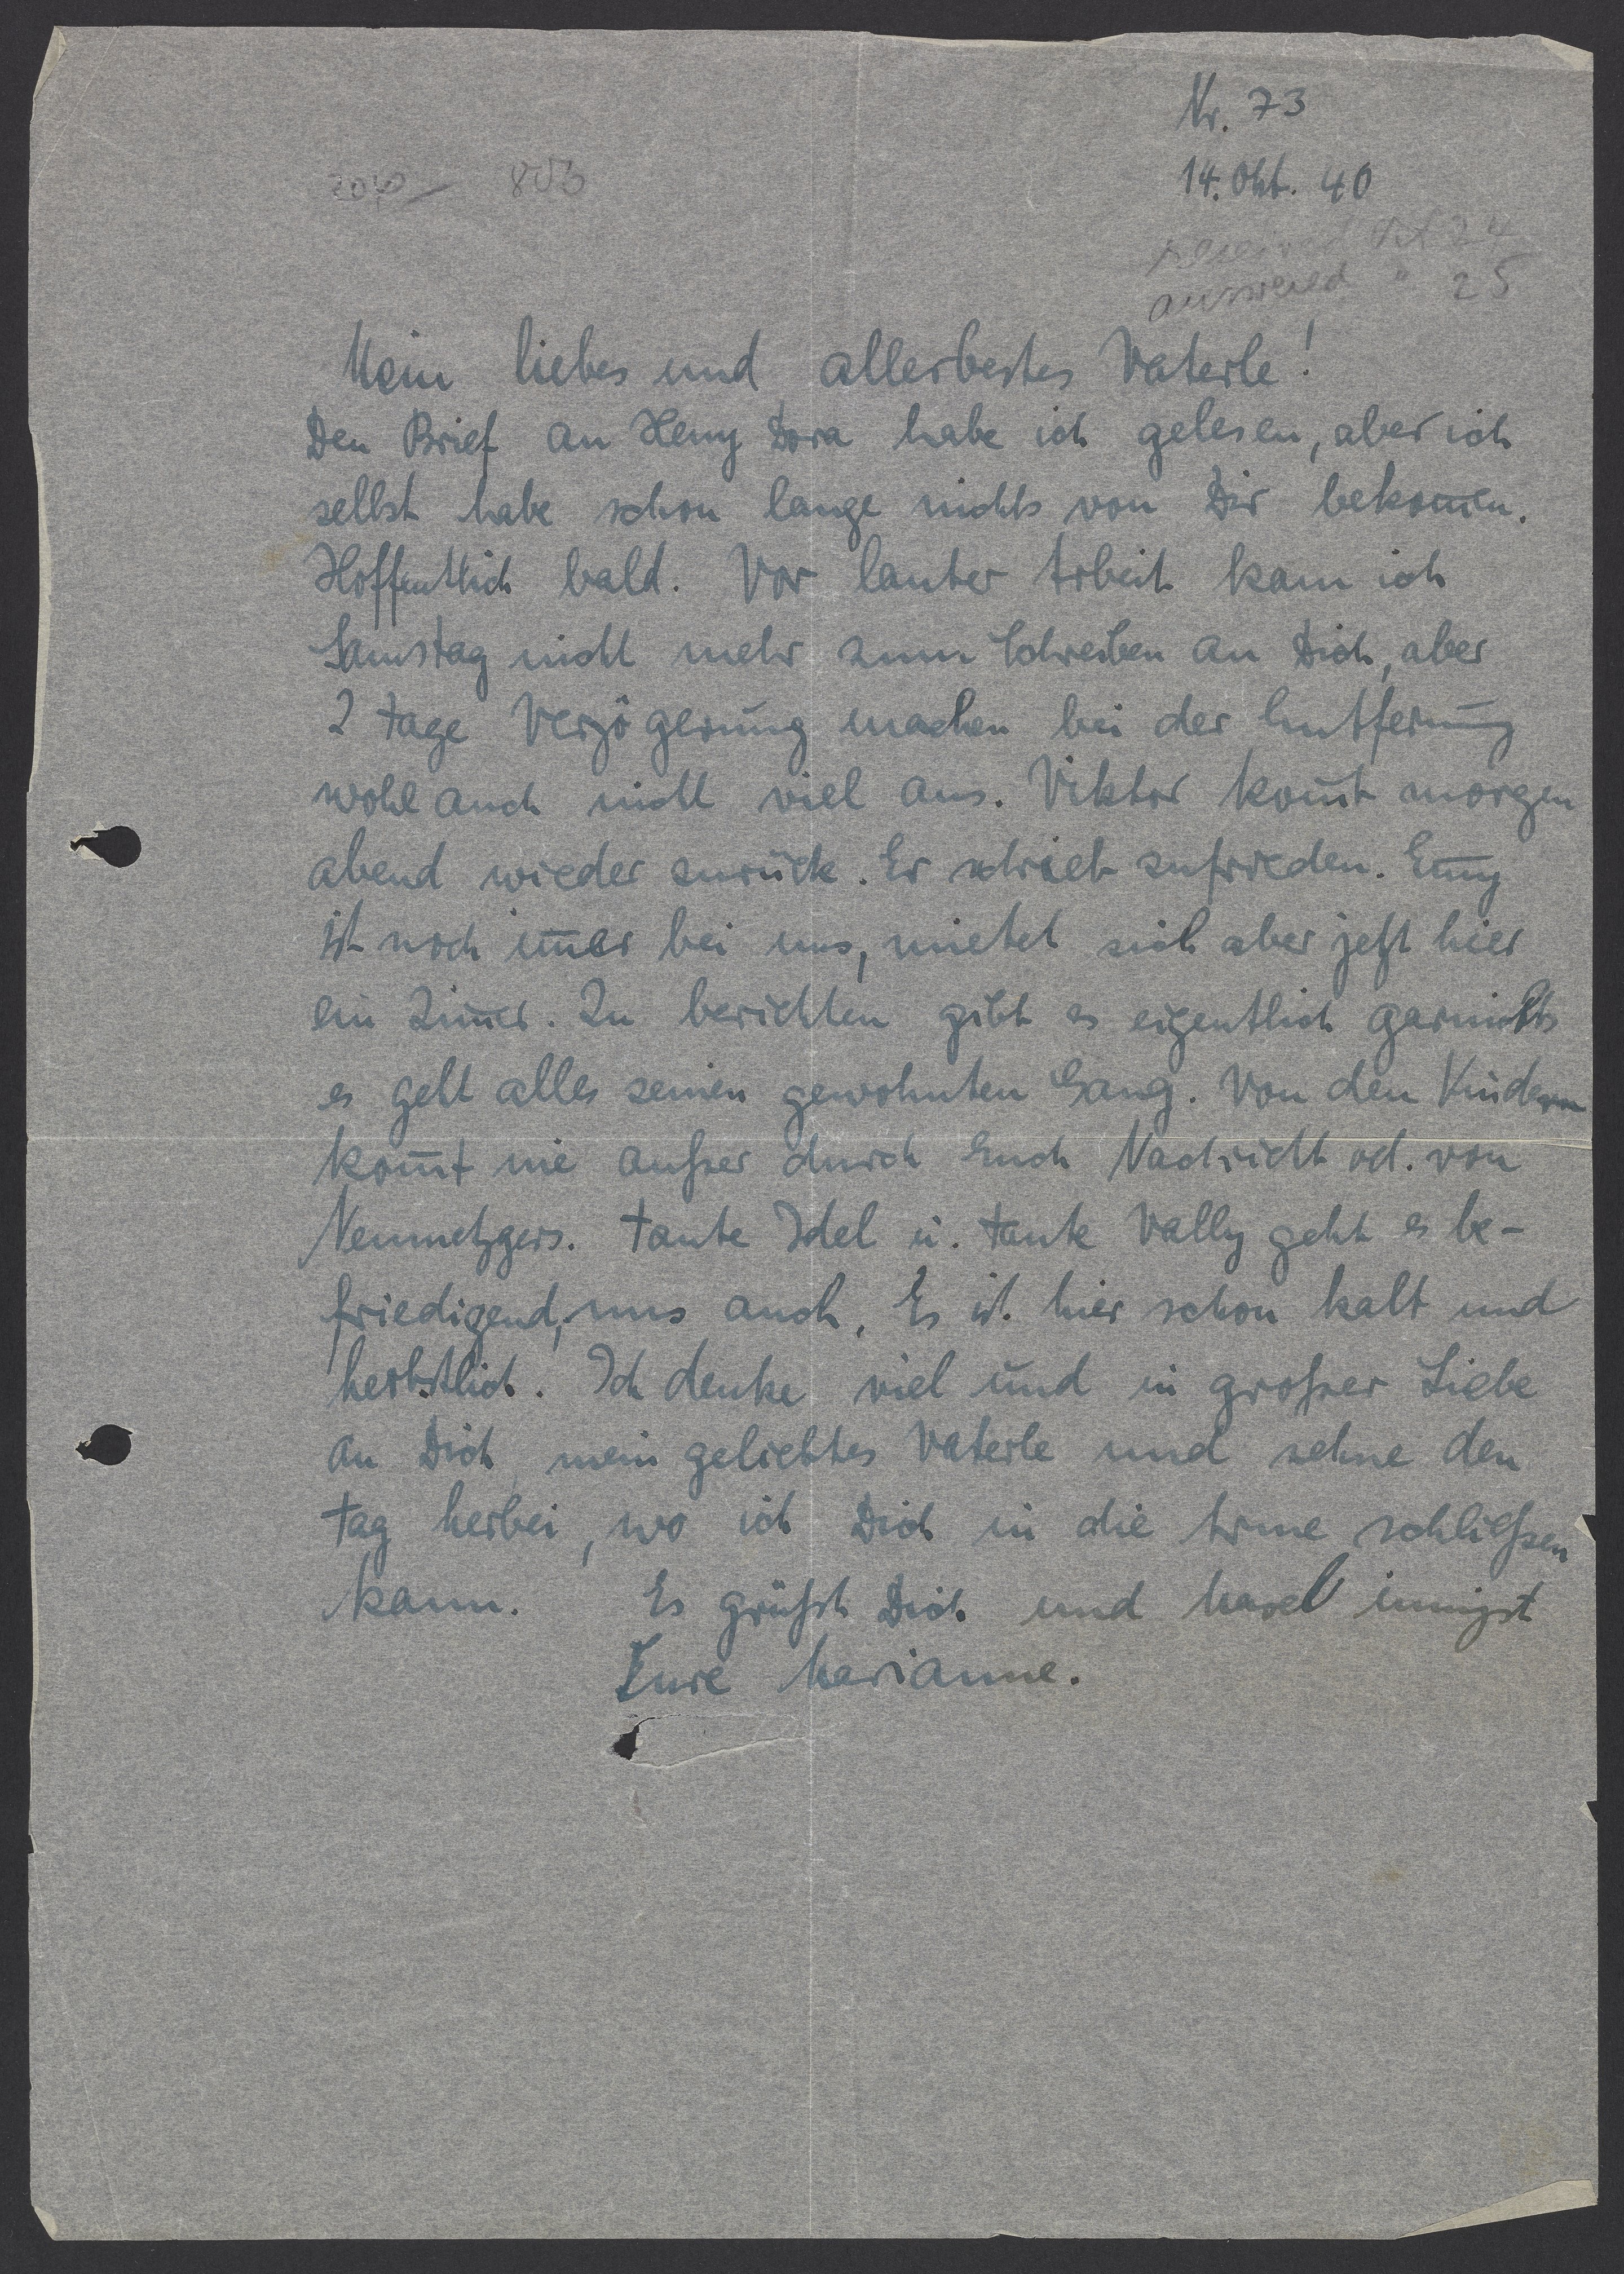 Nr. 73
14. Okt. 40
received Okt 24
answered " 25
Mein liebes und allerbestes Vaterle!
Den Brief an Henny Dora habe ich gelesen, aber ich
selbst habe schon lange nichts von Dir bekom̄en.
Hoffentlich bald. Vor lauter Arbeit kam ich
Samstag nicht mehr zum Schreiben an Dich, aber
2 Tage Verzögerung machen bei der Entfernung
wohl auch nicht viel aus. Viktor kom̄t morgen
abend wieder zurück. Er schrieb zufrieden. Em̄y
ist noch im̄er bei uns, mietet sich aber jetzt hier
ein Zim̄er. Zu berichten gibt es eigentlich garnichts
es geht alles seinen gewohnten Gang. Von den Kindern
kom̄t nie außer durch Euch Nachricht od. von
Nenmetzgers. Tante Idel u. Tante Vally geht es be-
friedigend, uns auch. Es ist hier schon kalt und
herbstlich. Ich denke viel und in großer Liebe
an Dich, mein geliebtes Vaterle und sehne den
Tag herbei, wo ich Dich in die Arme schließen
kann. Es grüßt Dich und innigst
Eure Marianne.